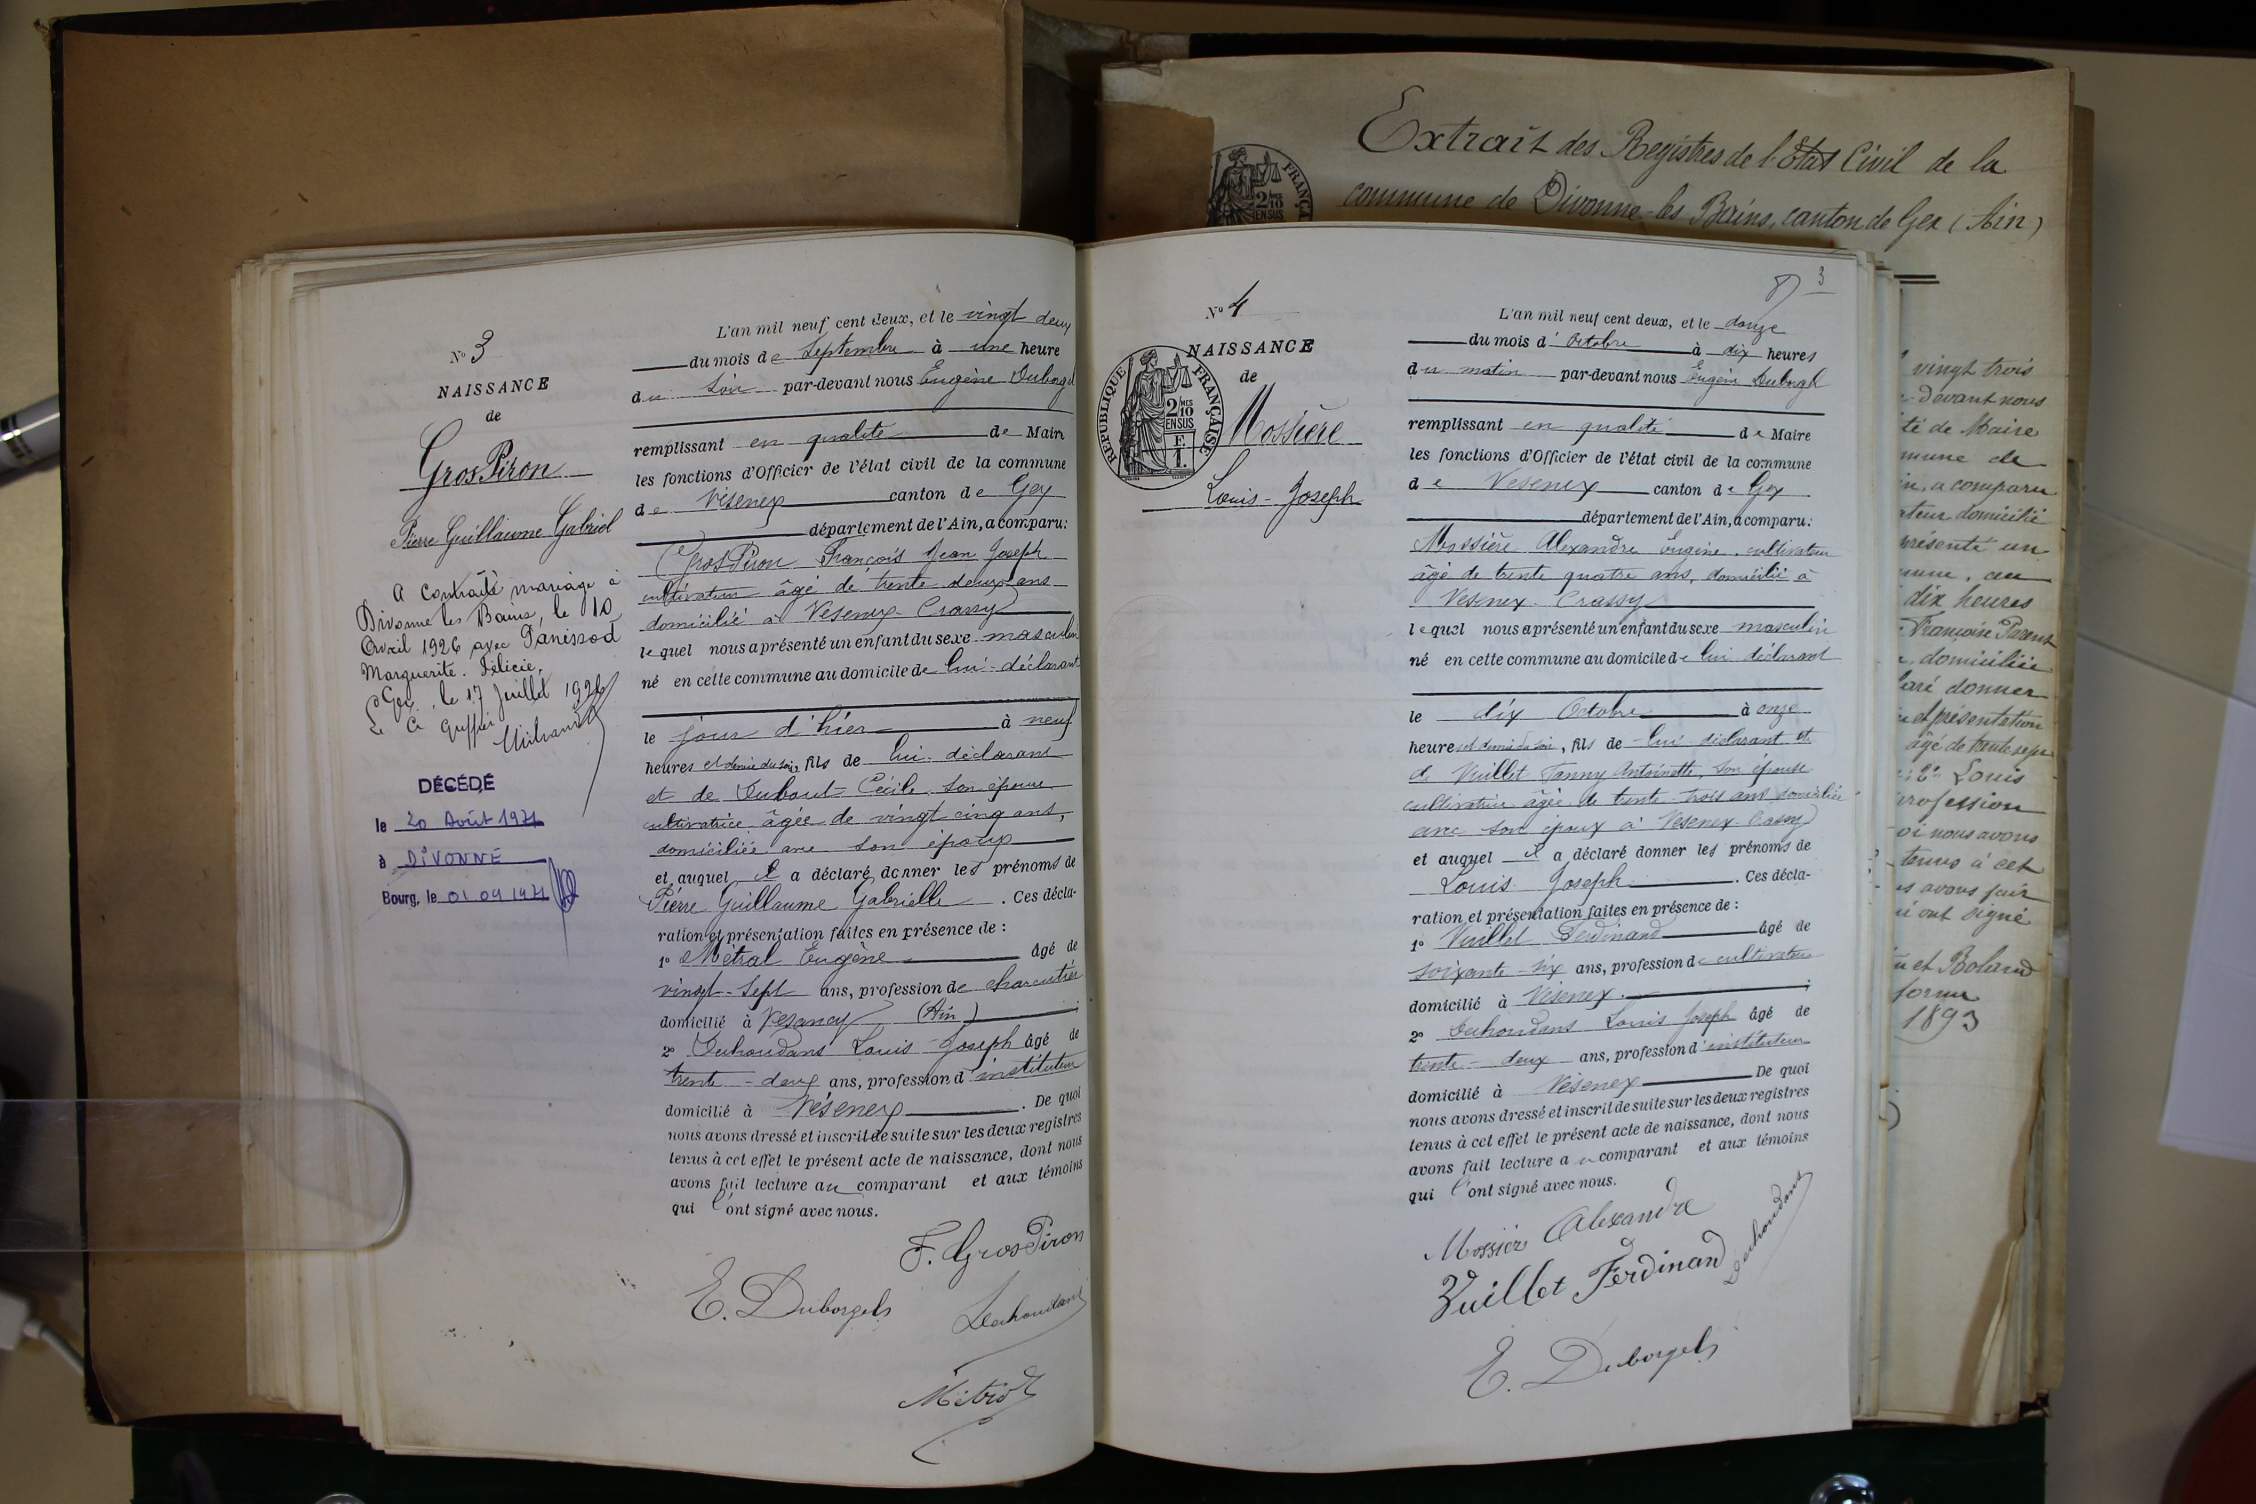 Nº 3
NAISSANCE
de
GrosPiron
Pierre Guillaume Gabriel
A contracté mariage à
Divonne les Bains, le 10
Avril 1926 avec Panissod
Marguerite. Félicie.
Gex, le 17 Juillet 1926
Le Greffier
DÉCÉDÉ
le 20 Août 1971
à DIVONNE
Bourg, le 01 09 1971
L'an mil neuf cent deux, et le vingt deux
du mois de Septembre à une heure
du soir par-devant nous Eugène Duborgel
remplissant en qualité de Maire
les fonctions d'Officier de l'état civil de la commune
de Vésenex canton de Gex
département de l'Ain, a comparu:
GrosPiron François Jean Joseph
cultivateur âgé de trente deux ans
domicilié à Vesenex-Crassy
lequel nous a présenté un enfant du sexe masculin
né en cette commune au domicile de lui-déclarant
le jour d'hier à neuf
heures et demie du soir, fils de lui-déclarant
et de Dubout Cécile son épouse
cultivatrice âgée de vingt cinq ans,
domiciliée avec son époux
et auquel il a déclaré donner les prénoms de
Pierre Guillaume Gabrielle . Ces décla-
ration et présentation faites en présence de :
1º Métral Eugène âgé de
vingt-sept ans, profession de charcutier
domicilié à Vesancy (Ain) ;
2º Dechoudans Louis-Joseph âgé de
trente-deux ans, profession d'instituteur
domicilié à Vésenex . De quoi
nous avons dressé et inscrit de suite sur les deux registres
tenus à cet effet le présent acte de naissance, dont nous
avons fait lecture au comparant et aux témoins
qui l'ont signé avec nous.
F. GrosPiron
E. Duborgel
Dechoudans
Métral
Extrait des Registres de l'Etat Civil de la
commune de Divonne-les Bains, canton de Gex (Ain)
3
Nº 4
NAISSANCE
de
RÉPUBLIQUE FRANÇAISE
2/10 MES
EN SUS
E.
I.
Mossière
Louis-Joseph
L'an mil neuf cent deux, et le douze
du mois d'Octobre à dix heures
du matin par-devant nous Eugène Duborgel
remplissant en qualité de Maire
les fonctions d'Officier de l'état civil de la commune
de Vesenex canton de Gex
département de l'Ain, a comparu:
Mossière Alexandre Eugène, cultivateur
âgé de trente quatre ans, domicilié à
Vesenex-Crassy
lequel nous a présenté un enfant du sexe masculin
né en cette commune au domicile de lui déclarant
le dix Octobre à onze
heures et demie du soir, fils de lui déclarant et
de Vuillet Fanny Antoinette, son épouse
cultivatrice âgée de trente-trois ans domiciliée
avec son époux à Vesenex-Crassy
et auquel il a déclaré donner les prénoms de
Louis Joseph . Ces décla-
ration et présentation faites en présence de :
1º Vuillet Ferdinand âgé de
soixante-six ans, profession de cultivateur
domicilié à Vésenex ;
2º Dechoudans Louis Joseph âgé de
trente-deux ans, profession d'instituteur
domicilié à Vésenex De quoi
nous avons dressé et inscrit de suite sur les deux registres
tenus à cet effet le présent acte de naissance, dont nous
avons fait lecture au comparant et aux témoins
qui l'ont signé avec nous.
Mossière Alexandre
Vuillet Ferdinand
Dechoudans
E. Duborgel
vingt trois
devant nous
té de Maire
mune de
in, a comparu
ateur domicilié
présenté un
mune, au
dix heures
Françoise Parent
domiciliée
laré donner
et présentation
âgé de trente sept
Louis
profession
oi nous avons
tenus à cet
s avons fait
i ont signé
et Roland
forme
1893